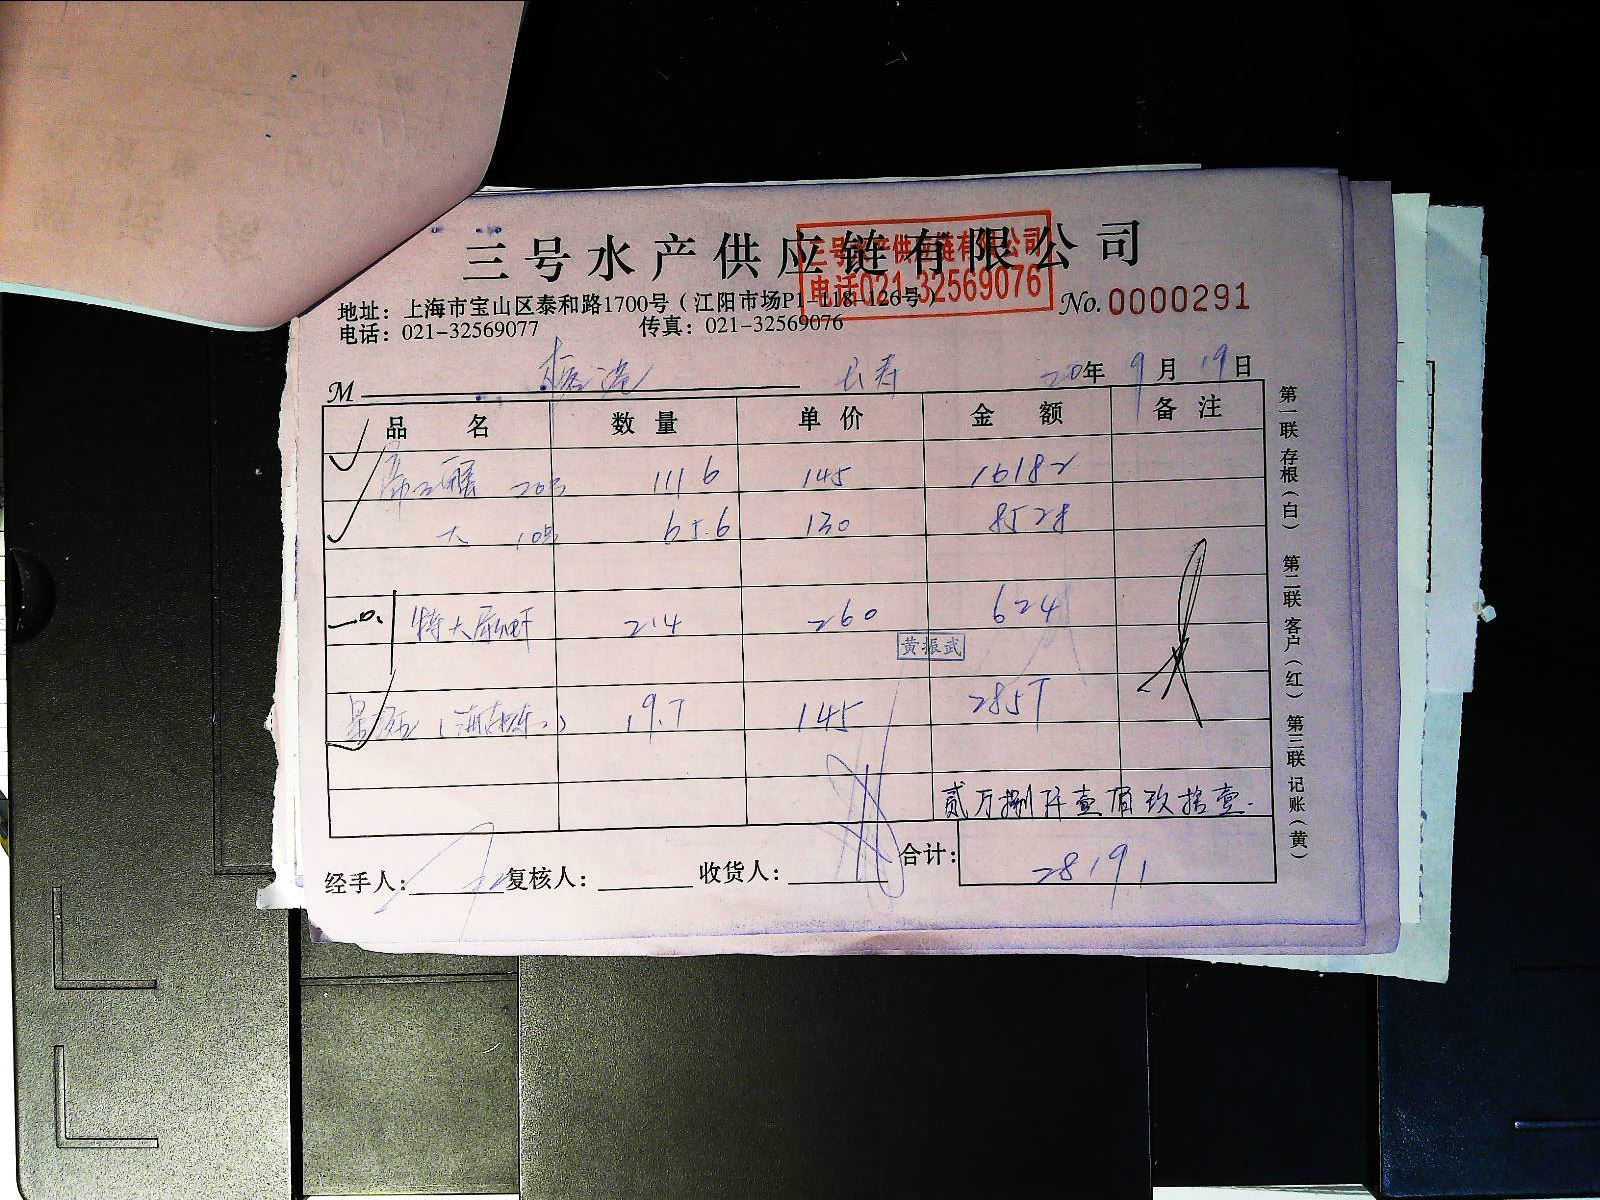 三号水产供应链有限公司
三号水产供应链有限公司
电话021-32569076
地址：上海市宝山区泰和路1700号（江阳市场P1-118-126号）
No.0000291
电话：021-32569077 传真：021-32569076
M 长寿 20年9月19日
品名 数量 单价 金额 备注
111.6 145 16182
大 10只 65.6 130 8528
特大 2.4 260 624
黄振武
19.7 145 2857
贰万捌仟壹佰玖拾壹.
经手人： 复核人： 收货人： 合计： 28191
第一联 存根（白） 第二联 客户（红） 第三联 记账（黄）